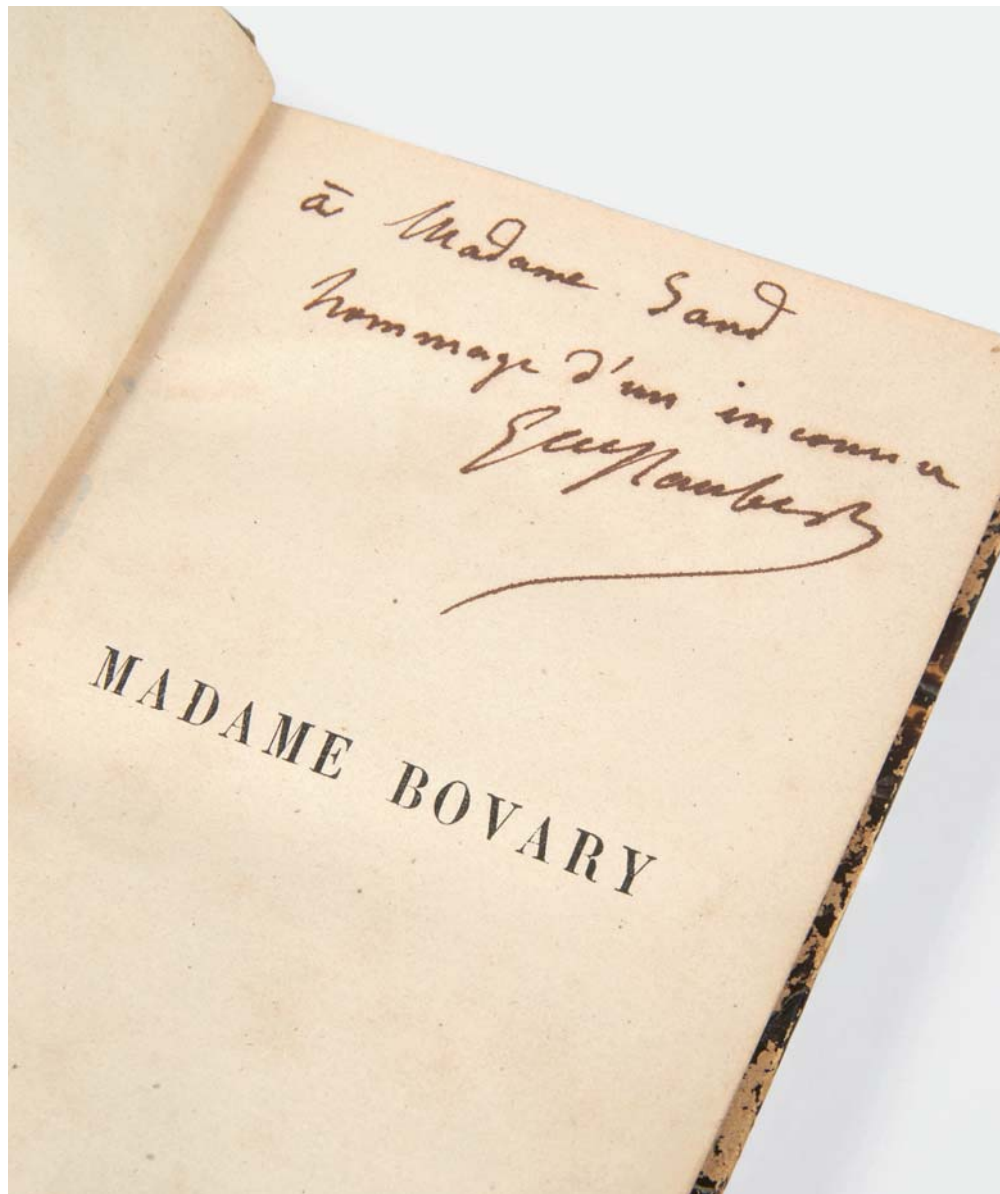 à Madame Sand
hommage d'un inconnu
Gve Flaubert
MADAME BOVARY